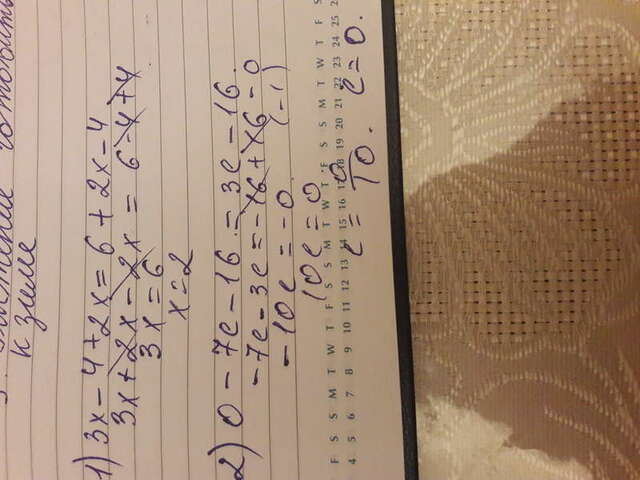 к зиме
1) 3x - 4 + 2x = 6 + 2x - 4
3x + 2x - 2x = 6 - 4 + 4
3x = 6
x = 2
2) 0 - 7c - 16 = 3c - 16.
-7c - 3c = -16 + 16 - 0
-10c = -0 (-1)
10c = 0
c = 0/10. c = 0.
F S S M T W T F S S M T W T F S S M T W T F S
4 5 6 7 8 9 10 11 12 13 14 15 16 17 18 19 20 21 22 23 24 25